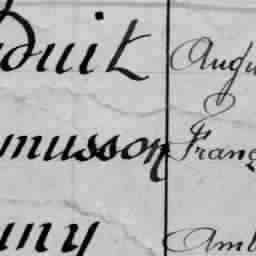 duit Augu
musson Franç
uny Amb